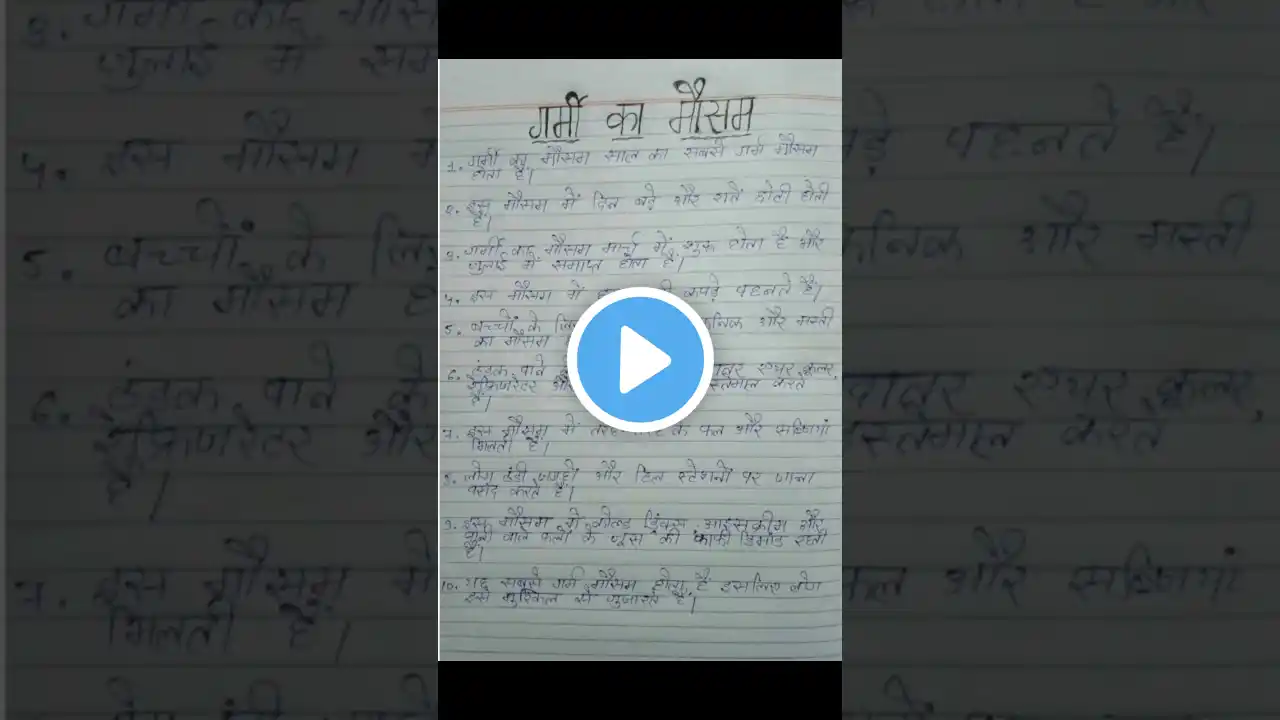 गर्मी का मौसम
1. गर्मी का मौसम साल का सबसे गर्म मौसम
होता है।
2. इस मौसम में दिन बड़े और रातें छोटी होती
है।
3. गर्मी का मौसम मार्च में शुरू होता है और
जुलाई में समाप्त होता है।
4. इस मौसम में कपड़े पहनते है।
5. बच्चों के और मस्ती
का मौसम
6. ठंडक पाने कूलर,
रेफ्रिजरेटर करते
है।
7. इस मौसम में के फल और सब्जियां
मिलती है।
8. लोग ठंडी जगहों और हिल स्टेशनों पर जाना
पसंद करते है।
9. इस मौसम में कोल्ड ड्रिंक्स, आइसक्रीम और
वाले फलों के जूस की काफी डिमांड रहती
है।
10. यह सबसे गर्म मौसम होता है इसलिए लोग
इसे मुश्किल से गुजारते है।